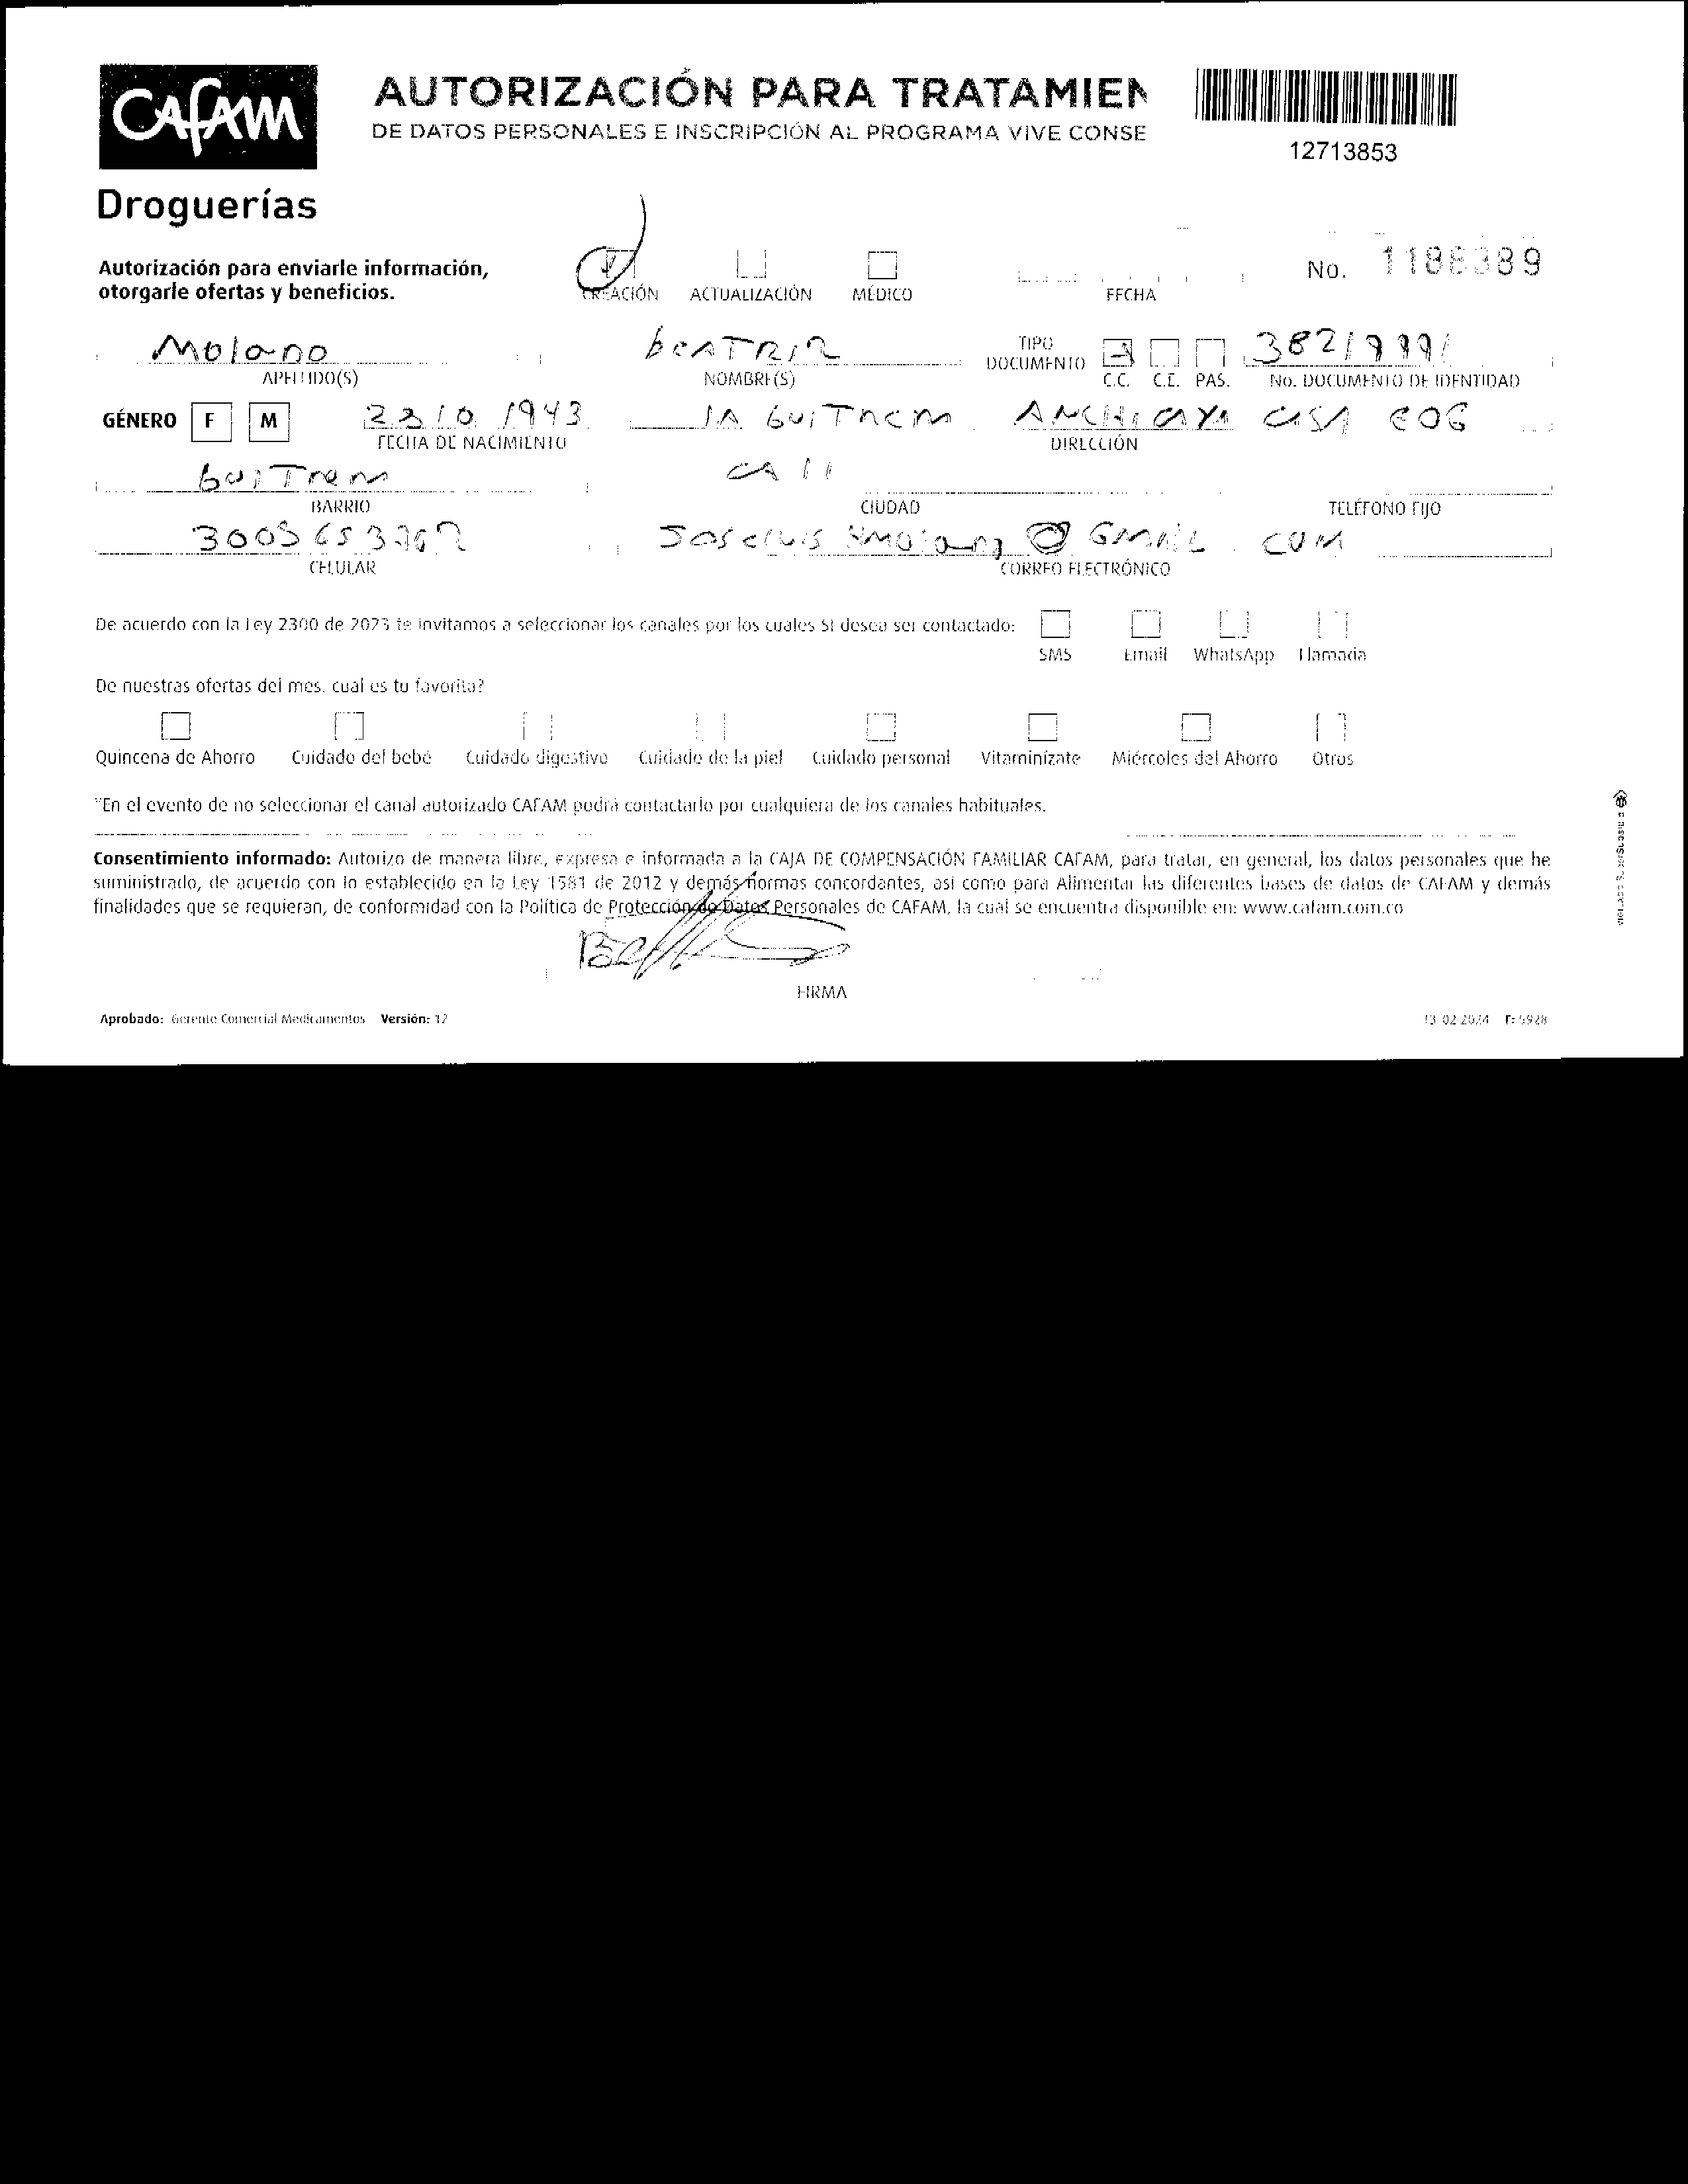 CAFAM
Droguerías
AUTORIZACIÓN PARA TRATAMIEN
DE DATOS PERSONALES E INSCRIPCIÓN AL PROGRAMA VIVE CONSE
12713853
Autorización para enviarle información,
otorgarle ofertas y beneficios.
CREACIÓN ACTUALIZACIÓN MÉDICO FECHA No. 1188389
Molano beATRIZ TIPO DOCUMENTO 38219991
APELLIDO(S) NOMBRE(S) C.C. C.E. PAS. No. DOCUMENTO DE IDENTIDAD
GÉNERO F M 2310 1943 ANCHICAYA CASA
FECHA DE NACIMIENTO DIRECCIÓN
CALI
BARRIO CIUDAD TELÉFONO FIJO
@ GMAIL . COM
CELULAR CORREO ELECTRÓNICO
De acuerdo con la Ley 2300 de 2023 te invitamos a seleccionar los canales por los cuales SI desea ser contactado:
SMS Email WhatsApp Llamada
De nuestras ofertas del mes. cual es tu favorita?
Quincena de Ahorro Cuidado del bebé Cuidado digestivo Cuidado de la piel Cuidado personal Vitaminízate Miércoles del Ahorro Otros
"En el evento de no seleccionar el canal autorizado CAFAM podrá contactarlo por cualquiera de los canales habituales.
Consentimiento informado: Autorizo de manera libre, expresa e informada a la CAJA DE COMPENSACIÓN FAMILIAR CAFAM, para tratar, en general, los datos personales que he
suministrado, de acuerdo con lo establecido en la Ley 1581 de 2012 y demás normas concordantes, así como para Alimentar las diferentes bases de datos de CAFAM y demás
finalidades que se requieran, de conformidad con la Política de Protección de Datos Personales de CAFAM, la cual se encuentra disponible en: www.cafam.com.co
FIRMA
Aprobado: Gerente Comercial Medicamentos Versión: 12
13 02 2024 F: 5928